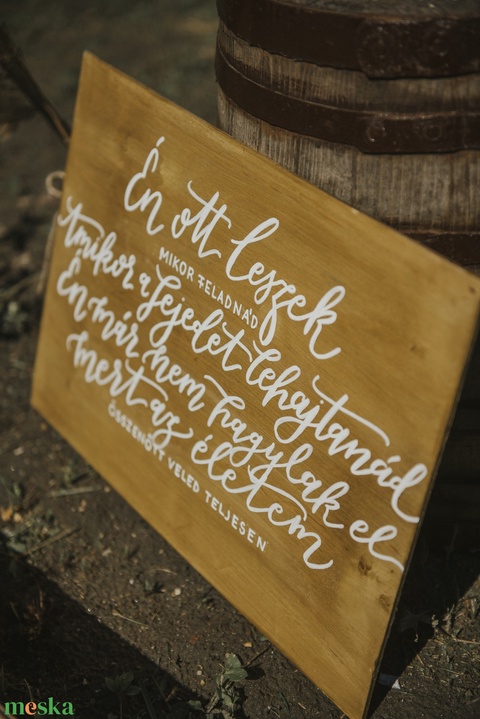 Én ott leszek
MIKOR FELADNÁD
Amikor a fejedet lehajtanád
Én már nem hagylak el
mert az életem
ÖSSZENŐTT VELED TELJESEN
meska